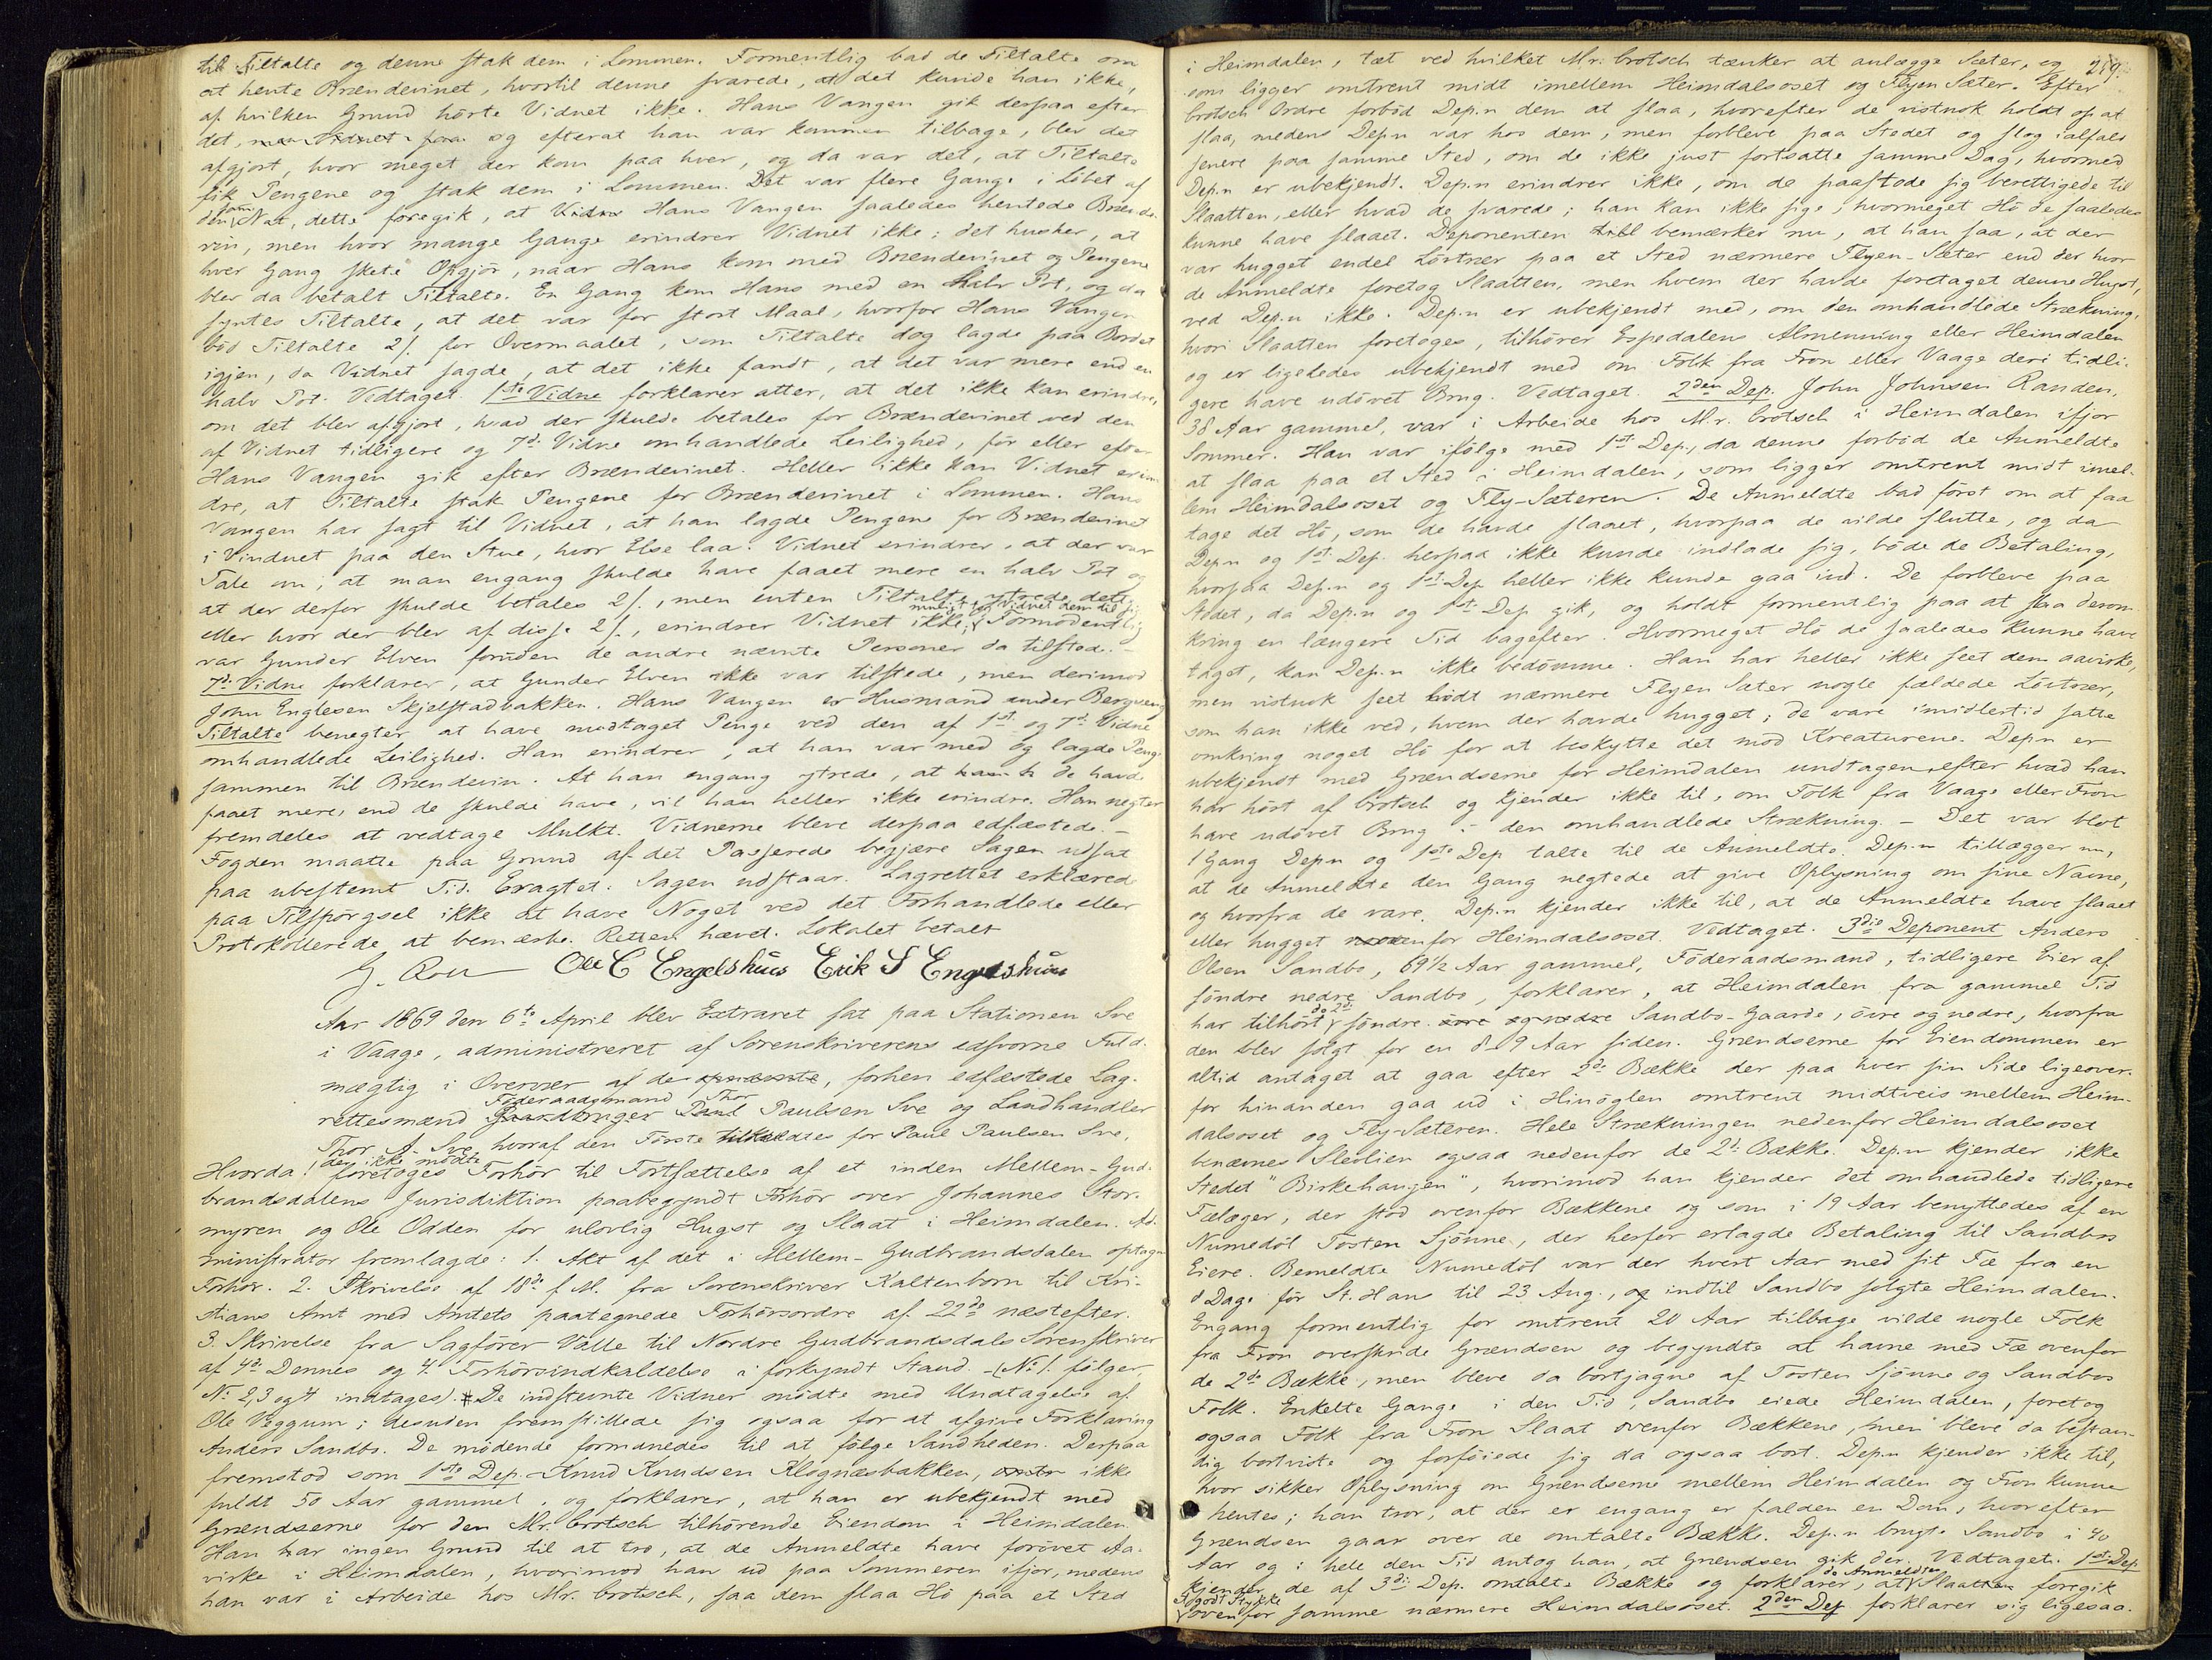 til Tiltalte og denne stak dem i Lommen. Formentlig bad de Tiltalte om
at hente Brændevinet, hvortil denne svarede, at det kunde han ikke,
af hvilken Grund hörte Vidnet ikke. Hans Vangen gik derpaa efter
det, og efterat han var kommen tilbage, blev det
afgjort, hvor meget der kom paa hver, og da var det, at Tiltalte
fik Pengene og stak dem i Lommen. Det var flere Gange i Löbet af
den Nat, dette foregik, at Hans Vangen saaledes hentede Brænde-
vin, men hvor mange Gange erindrer Vidnet ikke; det husker, at
hver Gang skete Opgjör, naar Hans kom med Brændevinet og Pengene
blev da betalt Tiltalte. En Gang kom Hans med en halv Pot, og da
syntes Tiltalte, at det var for stort Maal, hvorfor Hans Vangen
böd Tiltalte 2 s. for Overmaalet, som Tiltalte dog lagde paa Bordet
igjen, da Vidnet sagde, at det ikke fandt, at det var mere end en
halv Pot. Vedtaget. 1ste Vidne forklarer atter, at det ikke kan erindre,
om det blev afgjort, hvad der skulde betales for Brændevinet ved den
af Vidnet tidligere og 7de Vidne omhandlede Leilighed, för eller efter
Hans Vangen gik efter Brændevinet. Heller ikke kan Vidnet erin-
dre, at Tiltalte stak Pengene for Brændevinet i Lommen. Hans
Vangen har sagt til Vidnet, at han lagde Pengene for Brændevinet
i Vinduet paa den Stue, hvor Else laa. Vidnet erindrer, at der var
Tale om, at man engang skulde have faaet mere en halv Pot og
at der derfor skulde betales 2 s., men enten Tiltalte ytrede dette
eller hvor der blev af disse 2 s., erindrer Vidnet ikke; Formodentlig
var Gunder Elven foruden de andre nævnte Personer da tilstede. –
7de Vidne forklarer, at Gunder Elven ikke var tilstede, men derimod
John Englesen Skjelstadbakken. Hans Vangen er Husmand under Bergseng
Tiltalte benegter at have modtaget Penge ved den af 1ste og 7de Vidne
omhandlede Leilighed. Han erindrer, at han var med og lagde Penge
sammen til Brændevin. At han engang ytrede, at de havde
faaet mere, end de skulde have, vil han heller ikke erindre. Han negter
fremdeles at vedtage Mulkt. Vidnerne bleve derpaa edfæstede. –
Fogden maatte paa Grund af det Passerede begjære Sagen udsat
paa ubestemt Tid. Eragtet: Sagen udstaar. Lagrettet erklærede
paa Tilspörgsel ikke at have Noget ved det Forhandlede eller
Protokollerede at bemærke. Retten hævet. Lokalet betalt
Ole C Engelshuus Erik S Engelshuus
Aar 1869 den 6te April blev Extraret sat paa Stationen Sve
i Vaage, administreret af Sorenskriverens edsvorne Fuld-
mægtig i Overvær af de opnævnte, forhen edfæstede Lag-
Föderaadsmand Thor
rettesmænd Gaardbruger Paul Paulsen Sve og Landhandler
Thor A. Sve, hvoraf den Förste tilkaldtes for Paul Paulsen Sve,
der ikke mödte
Hvorda foretoges Forhör til Fortsættelse af et inden Mellem-Gud-
brandsdalens Jurisdiktion paabegyndt Forhör over Johannes Stor-
myren og Ole Odden for ulovlig Hugst og Slaat i Heimdalen. Ad-
ministrator fremlagde: 1. Akt af det i Mellem-Gudbrandsdalen optagne
Forhör. 2. Skrivelse af 18de f. M. fra Sorenskriver Kaltenborn til Kri-
stians Amt med Amtets paategnede Forhörsordre af 22de næstefter.
3. Skrivelse fra Sagförer Valle til Nordre Gudbrandsdals Sorenskriver
af 4de Dennes og 4. Forhörsindkaldelse i forkyndt Stand. (No 1 fölger,
No 2, 3 og 4 indtages). De indstevnte Vidner mödte med Undtagelse af
Ole Veggum; desuden fremstillede sig ogsaa for at afgive Forklaring
Anders Sandbo. De mödende formanedes til at fölge Sandheden. Derpaa
fremstod som 1ste Dep. Knud Knudsen Klognæsbakken, ikke
fuldt 50 Aar gammel, og forklarer, at han er ubekjendt med
Grændserne for den Mr. Crotsch tilhörende Eiendom i Heimdalen.
Han har ingen Grund til at tro, at de Anmeldte have forövet Aa-
virke i Heimdalen, hvorimod han ud paa Sommeren ifjor, medens
han var i Arbeide hos Mr. Crotsch, saa dem slaa Hö paa et Sted
219.
i Heimdalen, tæt ved hvilket Mr. Crotsch tænker at anlægge Sæter, og
som ligger omtrent midt imellem Heimdalsoset og Flyen Sæter. Efter
Crotsch Ordre forböd Dep.n dem at slaa, hvorefter de vistnok holdt op at
slaa, medens Dep.n var hos dem, men forbleve paa Stedet og slog ialfald
senere paa samme Sted, om de ikke just fortsatte samme Dag, hvormed
Dep.n er ubekjendt. Dep.n erindrer ikke, om de paastode sig berettigede til
Slaatten, eller hvad de svarede; han kan ikke sige, hvormeget Hö de saaledes
kunne have slaaet. Deponenten bemærker nu, at han saa, at der
var hugget endel Lövtrær paa et Sted nærmere Flyen-Sæter end der hvor
de Anmeldte foretog Slaatten, men hvem der havde foretaget denne Hugst,
ved Dep.n ikke. Dep.n er ubekjendt med, om den omhandlede Strækning,
hvori Slaatten foretoges, tilhörer Espedalens Almenning eller Heimdalen
og er ligeledes ubekjendt med om Folk fra Fron eller Vaage deri tidli-
gere have udövet Brug. Vedtaget. 2den Dep. John Johnsen Randen,
38 Aar gammel, var i Arbeide hos Mr. Crotsch i Heimdalen ifjor
Sommer. Han var ifölge med 1ste Dep., da denne forböd de Anmeldte
at slaa paa et Sted i Heimdalen, som ligger omtrent midt imel-
lem Heimdalsoset og Fly-Sæteren. De Anmeldte bad först om at faa
tage det Hö, som de havde slaaet, hvorpaa de vilde slutte, og da
Dep.n og 1ste Dep. herpaa ikke kunde indlade sig, böde de Betaling,
hvorpaa Dep.n og 1ste Dep. heller ikke kunde gaa ind. De forbleve paa
Stedet, da Dep.n og 1ste Dep. gik, og holdt formentlig paa at slaa derom-
kring en længere Tid bagefter. Hvormeget Hö de saaledes kunne have
taget, kan Dep.n ikke bedömme. Han har heller ikke seet dem aavirke,
men vistnok seet lidt nærmere Flyen Sæter nogle fældede Lövtrær,
som han ikke ved, hvem der havde hugget; de vare imidlertid satte
omkring noget Hö for at beskytte det mod Kreaturene. Dep.n er
ubekjendt med Grændserne for Heimdalen undtagen efter hvad han
har hört af Crotsch og kjender ikke til, om Folk fra Vaage eller Fron
have udövet Brug i den omhandlede Strækning. – Det var blot
1 Gang Dep.n og 1ste Dep talte til de Anmeldte. Dep.n tillægger nu,
at de Anmeldte den Gang negtede at give Oplysning om sine Navne,
og hvorfra de vare. Dep.n kjender ikke til, at de Anmeldte have slaaet
eller hugget ovenfor Heimdalsoset. Vedtaget. 3die Deponent Anders
Olsen Sandbo, 69½ Aar gammel, Föderaadsmand, tidligere Eier af
söndre nedre Sandbo, forklarer, at Heimdalen fra gammel Tid
de 2de
har tilhört söndre övre og nedre Sandbo-Gaarde, övre og nedre, hvorfra
den blev solgt for en 8 à 9 Aar siden. Grændserne for Eiendommen er
altid antaget at gaa efter 2de Bække der paa hver sin Side ligeover-
for hinanden gaa ud i Hinöglen omtrent midtveis mellem Heim-
dalsoset og Fly-Sæteren. Hele Strækningen nedenfor Heimdalsoset
benævnes Sledlien ogsaa nedenfor de 2de Bække. Dep.n kjender ikke
Stedet "Birkehaugen", hvorimod han kjender det omhandlede tidligere
Fælæger, der stod ovenfor Bækkene og som i 19 Aar benyttedes af en
Numedöl Tosten Sjönne, der herfor erlagde Betaling til Sandbos
Eiere. Bemeldte Numedöl var der hvert Aar med sit Fæ fra en
8 Dage för St. Hans til 23 Aug., og indtil Sandbo solgte Heimdalen.
Engang formentlig for omtrent 20 Aar tilbage vilde nogle Folk
fra Fron overskride Grændsen og begyndte at havne med Fæ ovenfor
de 2de Bække, men bleve da bortjagne af Tosten Sjönne og Sandbos
Folk. Enkelte Gange i den Tid, Sandbo eiede Heimdalen, foretog
ogsaa Folk fra Fron Slaat ovenfor Bækkene, men bleve da bestan-
dig bortviste og forföiede sig da ogsaa bort. Dep.n kjender ikke til,
hvor sikker Oplysning om Grændserne mellem Heimdalen og Fron kunne
hentes; han tror, at der er engang er falden en Dom, hvorefter
Grændsen gaar over de omtalte Bække. Dep.n brugte Sandbo i 40
Aar og i hele den Tid antog han, at Grændsen gik der. Vedtaget. 1ste Dep.
de Anmeldtes
kjender de af 3die Dep. omtalte Bække og forklarer, at Slaatten foregik
et godt Stykke
ovenfor samme nærmere Heimdalsoset. 2den Dep forklarer sig ligesaa.